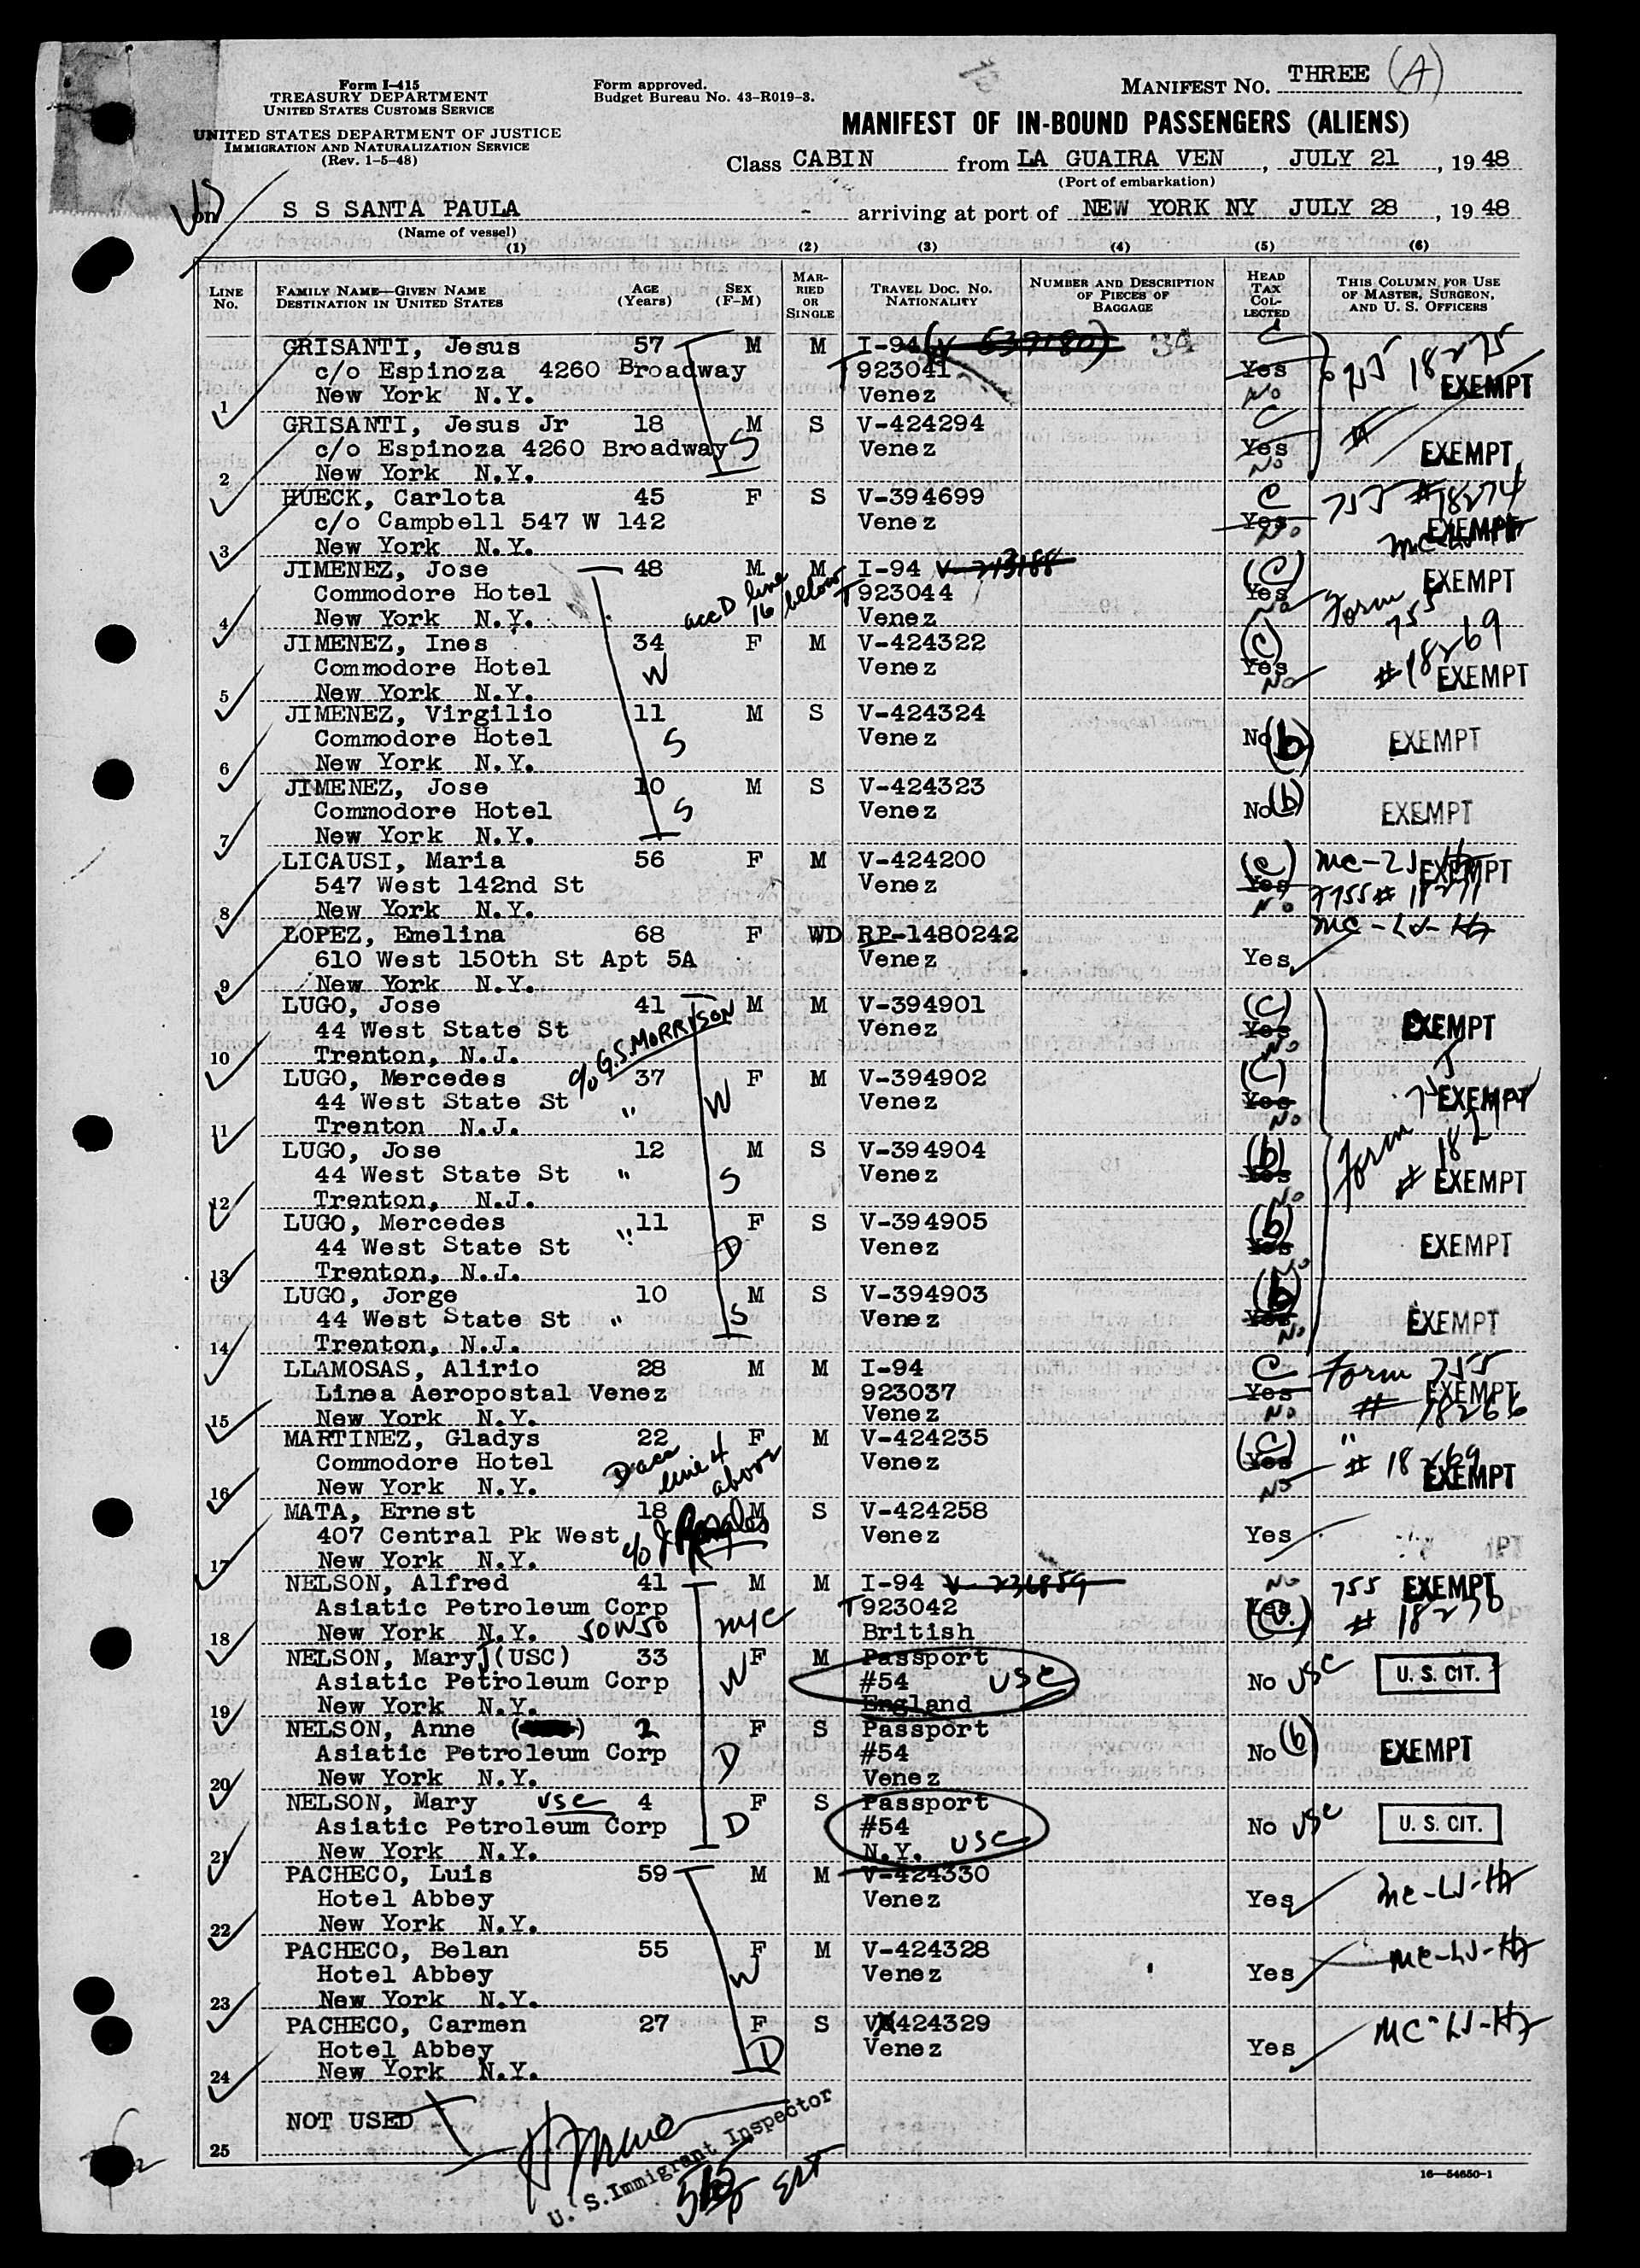 Form I-415
TREASURY DEPARTMENT
UNITED STATES CUSTOMS SERVICE
UNITED STATES DEPARTMENT OF JUSTICE
IMMIGRATION AND NATURALIZATION SERVICE
(Rev. 1-5-48)
Form approved.
Budget Bureau No. 43-R019-3.
MANIFEST NO. THREE (A)
MANIFEST OF IN-BOUND PASSENGERS (ALIENS)
Class CABIN from LA GUAIRA VEN, JULY 21, 19 48
(Port of embarkation)
on S S SANTA PAULA - arriving at port of NEW YORK NY JULY 28, 19 48
(Name of vessel)
(1) (2) (3) (4) (5) (6)
LINE No. FAMILY NAME—GIVEN NAME DESTINATION IN UNITED STATES AGE (Years) SEX (F-M) MARRIED OR SINGLE TRAVEL DOC. NO. NATIONALITY NUMBER AND DESCRIPTION OF PIECES OF BAGGAGE HEAD TAX COLLECTED THIS COLUMN FOR USE OF MASTER, SURGEON, AND U. S. OFFICERS
GRISANTI, Jesus 57 M M I-94 C
c/o Espinoza 4260 Broadway T923041 Yes 755 18275
1 New York N.Y. Venez No EXEMPT
GRISANTI, Jesus Jr 18 M S V-424294 C
c/o Espinoza 4260 Broadway S Venez Yes EXEMPT
2 New York N.Y. No
HUECK, Carlota 45 F S V-394699 C 755 #18274
c/o Campbell 547 W 142 Venez Yes EXEMPT
3 New York N.Y. No
JIMENEZ, Jose 48 M M I-94 (C) EXEMPT
Commodore Hotel accD line 16 below T923044 Yes Form 755
4 New York N.Y. Venez No
JIMENEZ, Ines 34 F M V-424322 (C) #18269
Commodore Hotel W Venez Yes EXEMPT
5 New York N.Y. No
JIMENEZ, Virgilio 11 M S V-424324
Commodore Hotel S Venez No (b) EXEMPT
6 New York N.Y.
JIMENEZ, Jose 10 M S V-424323
Commodore Hotel S Venez No (b) EXEMPT
7 New York N.Y.
LICAUSI, Maria 56 F M V-424200 (c) EXEMPT
547 West 142nd St Venez Yes 755# 18271
8 New York N.Y. No
LOPEZ, Emelina 68 F WD RP-1480242
610 West 150th St Apt 5A Venez Yes
9 New York N.Y.
LUGO, Jose 41 M M V-394901 (C)
44 West State St c/o G.S. MORRISON Venez Yes EXEMPT
10 Trenton, N.J. No
LUGO, Mercedes 37 F M V-394902 (C)
44 West State St " W Venez Yes EXEMPT
11 Trenton N.J. No
LUGO, Jose 12 M S V-394904 (b) Form
44 West State St " S Venez Yes # EXEMPT
12 Trenton, N.J. No
LUGO, Mercedes 11 F S V-394905 (b)
44 West State St " D Venez Yes EXEMPT
13 Trenton, N.J. No
LUGO, Jorge 10 M S V-394903 (b)
44 West State St " S Venez Yes EXEMPT
14 Trenton, N.J. No
LLAMOSAS, Alirio 28 M M I-94 C Form 755
Linea Aeropostal Venez 923037 Yes EXEMPT
15 New York N.Y. Venez No # 18266
MARTINEZ, Gladys 22 F M V-424235 (C) "
Commodore Hotel D acc line 4 above Venez Yes # 18269
16 New York N.Y. No EXEMPT
MATA, Ernest 18 M S V-424258
407 Central Pk West c/o Venez Yes
17 New York N.Y.
NELSON, Alfred 41 M M I-94 V-236859 No 755 EXEMPT
Asiatic Petroleum Corp NYC T923042 Yes # 18270
18 New York N.Y. 50W50 British
NELSON, Mary J (USC) 33 F M Passport
Asiatic Petroleum Corp W #54 USC No USC U. S. CIT.
19 New York N.Y. England
NELSON, Anne 2 F S Passport
Asiatic Petroleum Corp D #54 No (b) EXEMPT
20 New York N.Y. Venez
NELSON, Mary USC 4 F S Passport
Asiatic Petroleum Corp D #54 No USC U. S. CIT.
21 New York N.Y. N.Y. USC
PACHECO, Luis 59 M M V-424330
Hotel Abbey Venez Yes
22 New York N.Y.
PACHECO, Belan 55 F M V-424328
Hotel Abbey W Venez Yes
23 New York N.Y.
PACHECO, Carmen 27 F S V-424329
Hotel Abbey D Venez Yes
24 New York N.Y.
NOT USED
25
U. S. Immigrant Inspector
16—54650-1